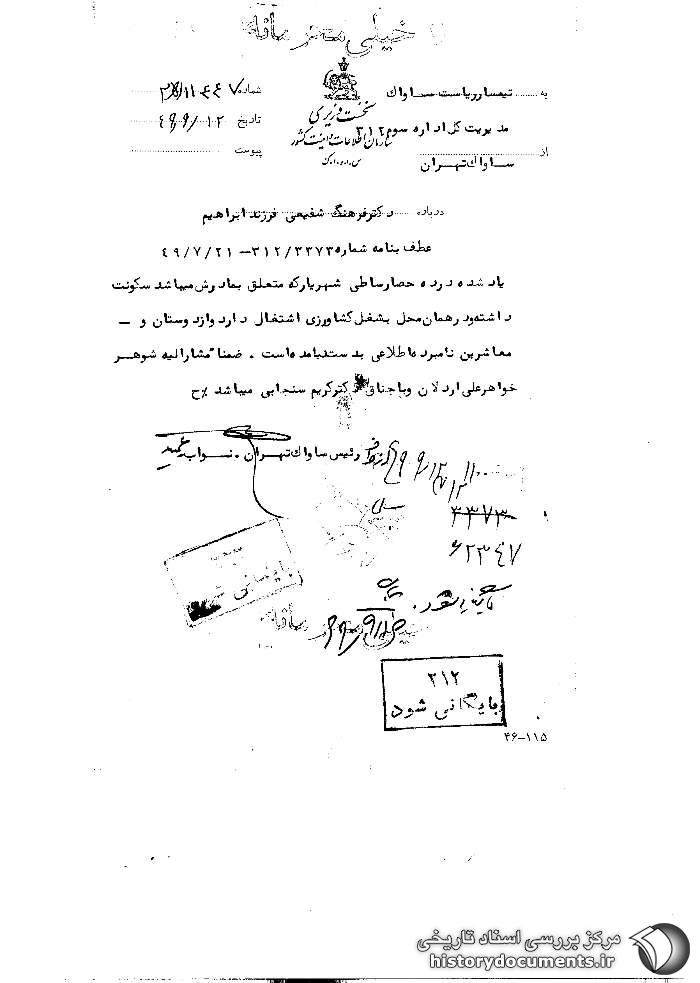 خیلی محرمانه
به ..... تیمسار ریاست ساواک
نخست وزیری
سازمان اطلاعات و امنیت کشور
س.ا.و.ا.ک
شماره
تاریخ ۴۹/۹/۱۲
پیوست
مدیریت کل اداره سوم ۳۱۲
از ساواک تهران
درباره ..... دکتر فرهنگ شفیعی فرزند ابراهیم
عطف بنامه شماره ۳۱۲/۳۳۷۳ – ۴۹/۷/۲۱
یاد شده در ده حصار ساطی شهریار که متعلق بمادرش میباشد سکونت
داشته و در همان محل بشغل کشاورزی اشتغال دارد و از دوستان و –
معاشرین نامبرده اطلاعی بدست نیامده است . ضمنا" مشارالیه شوهر
خواهر علی اردلان و باجناق دکتر کریم سنجابی میباشد %ح
رئیس ساواک تهران . نواب
۳۳۷۳
۶۲۳۴۷
بایگانی شود.
خیلی محرمانه
۳۱۲
بایگانی شود
۴۶-۱۱۵
مرکز بررسی اسناد تاریخی
historydocuments.ir